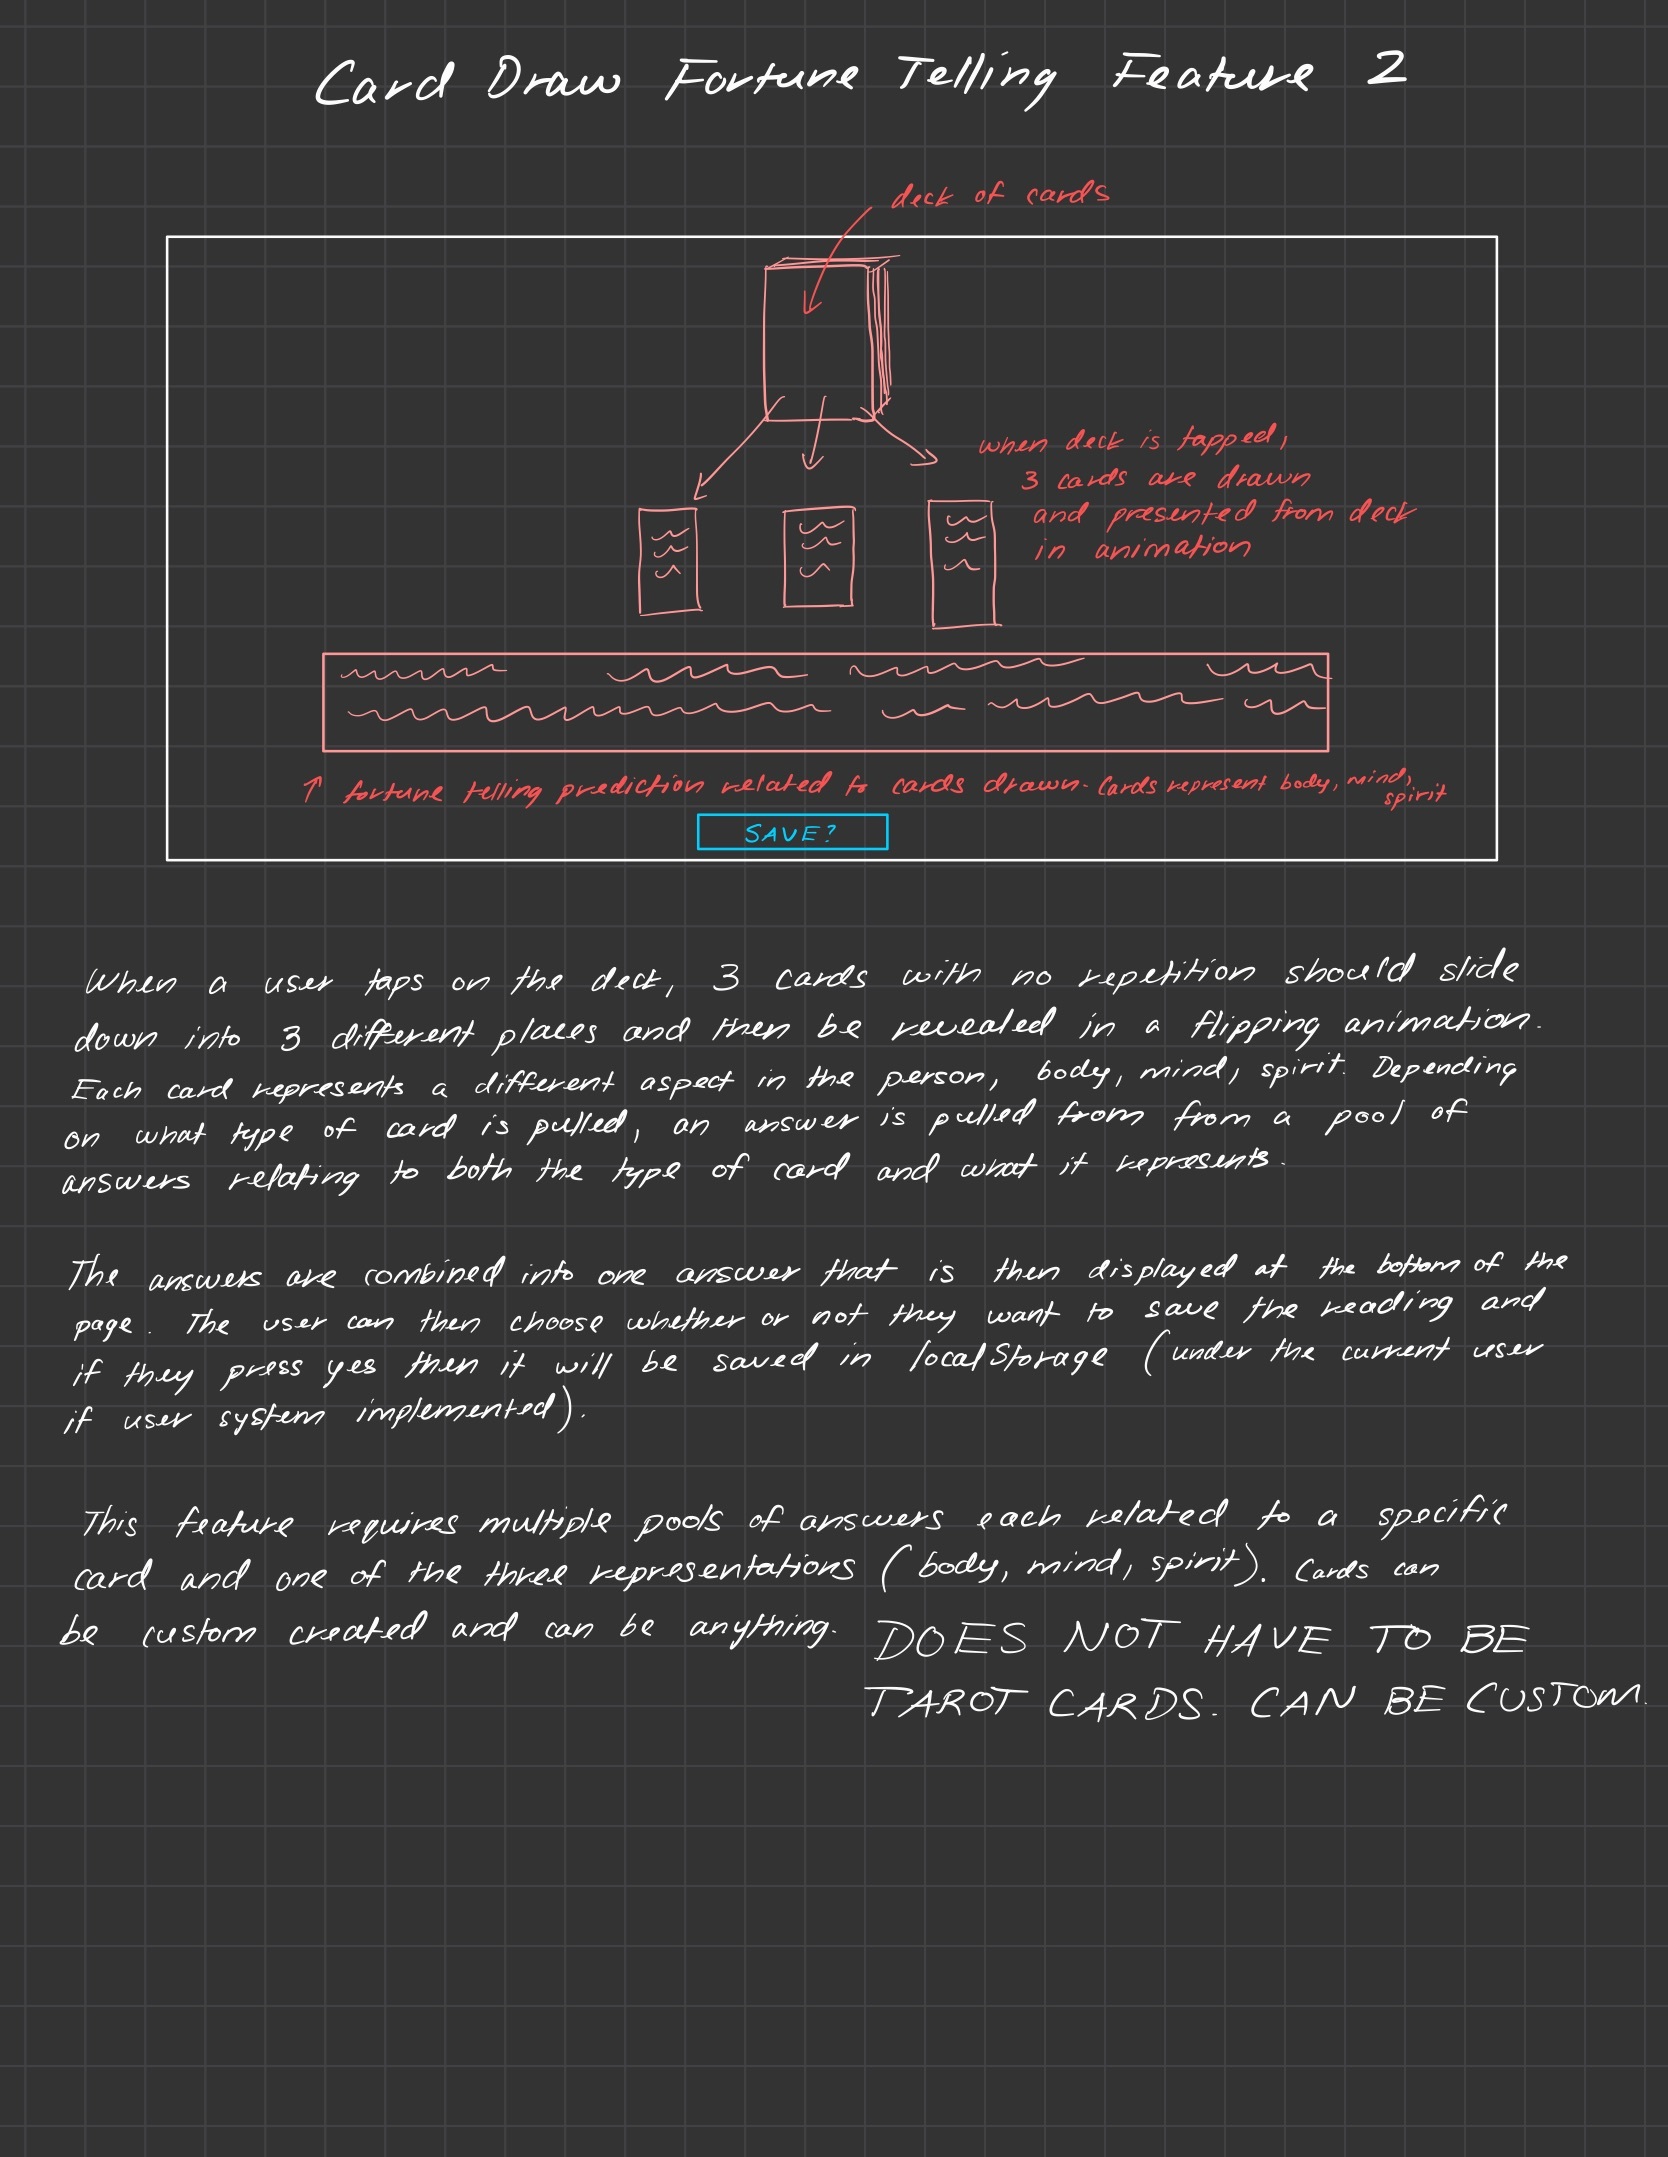 Card Draw Fortune Telling Feature 2
deck of cards
when deck is tapped,
3 cards are drawn
and presented from deck
in animation
↑ fortune telling prediction related to cards drawn. Cards represent body, mind,
spirit
SAVE?
When a user taps on the deck, 3 cards with no repetition should slide
down into 3 different places and then be revealed in a flipping animation.
Each card represents a different aspect in the person, body, mind, spirit. Depending
on what type of card is pulled, an answer is pulled from from a pool of
answers relating to both the type of card and what it represents.
The answers are combined into one answer that is then displayed at the bottom of the
page. The user can then choose whether or not they want to save the reading and
if they press yes then it will be saved in localStorage (under the current user
if user system implemented).
This feature requires multiple pools of answers each related to a specific
card and one of the three representations (body, mind, spirit). Cards can
be custom created and can be anything. DOES NOT HAVE TO BE
TAROT CARDS. CAN BE CUSTOM.